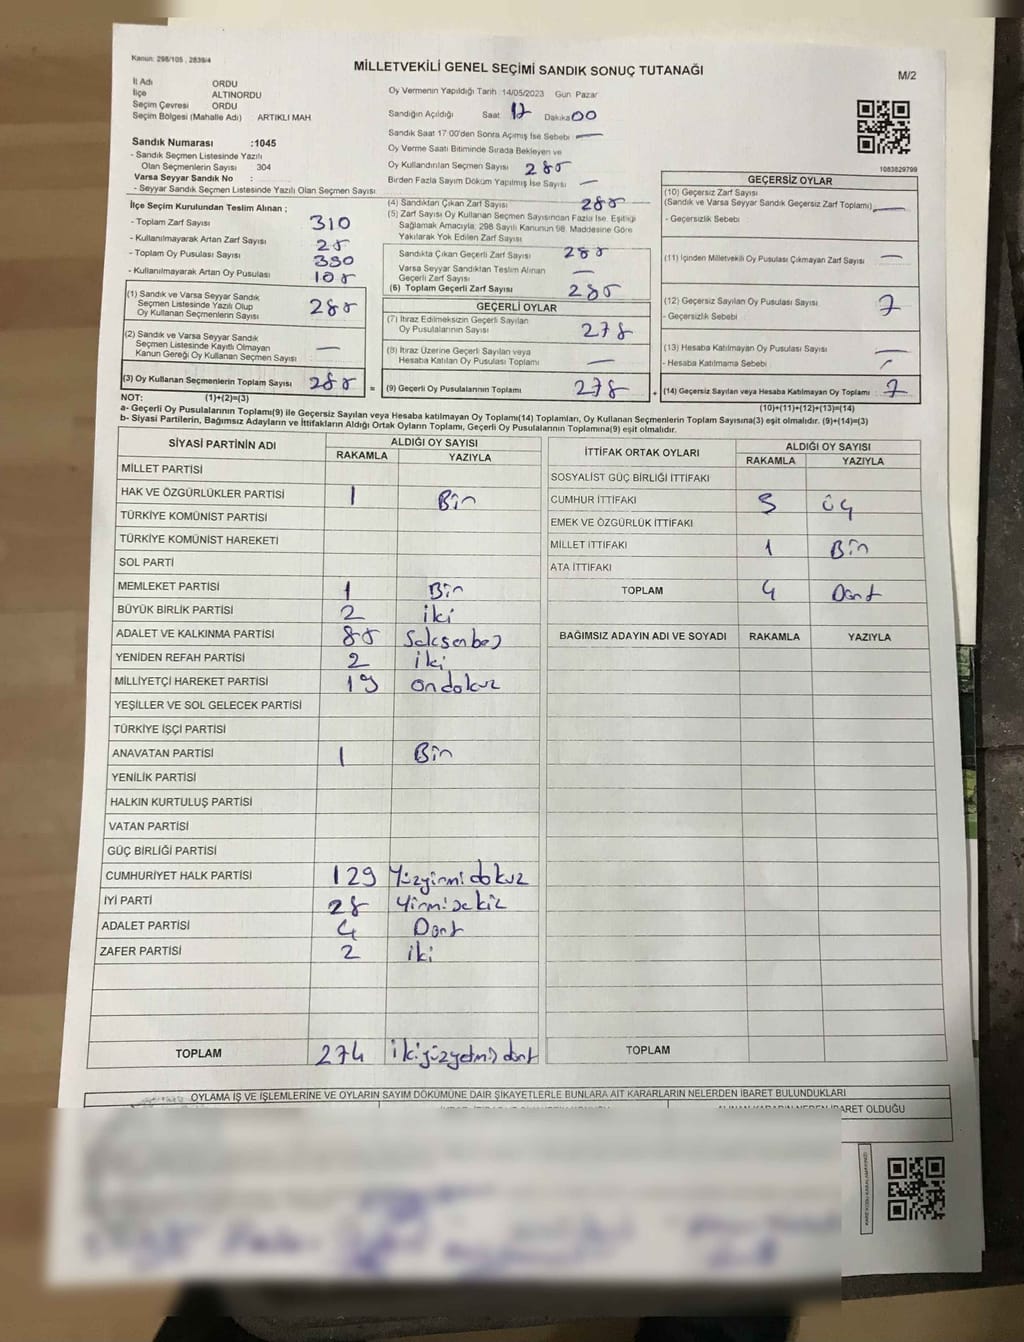 Kanun: 298/105 , 2839/4
MİLLETVEKİLİ GENEL SEÇİMİ SANDIK SONUÇ TUTANAĞI
M/2
İl Adı ORDU
İlçe ALTINORDU
Seçim Çevresi ORDU
Seçim Bölgesi (Mahalle Adı) ARTIKLI MAH
Sandık Numarası :1045
- Sandık Seçmen Listesinde Yazılı
Olan Seçmenlerin Sayısı 304
Varsa Seyyar Sandık No :
- Seyyar Sandık Seçmen Listesinde Yazılı Olan Seçmen Sayısı
Oy Vermenin Yapıldığı Tarih 14/05/2023 Gün Pazar
Sandığın Açıldığı Saat 17 Dakika 00
Sandık Saat 17:00'den Sonra Açılmış İse Sebebi —
Oy Verme Saati Bitiminde Sırada Bekleyen ve
Oy Kullandırılan Seçmen Sayısı 285
Birden Fazla Sayım Döküm Yapılmış İse Sayısı —
1083829799
İlçe Seçim Kurulundan Teslim Alınan ;
- Toplam Zarf Sayısı 310
- Kullanılmayarak Artan Zarf Sayısı 25
- Toplam Oy Pusulası Sayısı 390
- Kullanılmayarak Artan Oy Pusulası 105
(1) Sandık ve Varsa Seyyar Sandık
Seçmen Listesinde Yazılı Olup
Oy Kullanan Seçmenlerin Sayısı 285
(2) Sandık ve Varsa Seyyar Sandık
Seçmen Listesinde Kayıtlı Olmayan
Kanun Gereği Oy Kullanan Seçmen Sayısı —
(3) Oy Kullanan Seçmenlerin Toplam Sayısı 285 =
(4) Sandıktan Çıkan Zarf Sayısı 285
(5) Zarf Sayısı Oy Kullanan Seçmen Sayısından Fazla İse, Eşitliği
Sağlamak Amacıyla, 298 Sayılı Kanunun 98. Maddesine Göre
Yakılarak Yok Edilen Zarf Sayısı
Sandıkta Çıkan Geçerli Zarf Sayısı 285
Varsa Seyyar Sandıktan Teslim Alınan
Geçerli Zarf Sayısı —
(6) Toplam Geçerli Zarf Sayısı 285
GEÇERLİ OYLAR
(7) İtiraz Edilmeksizin Geçerli Sayılan
Oy Pusulalarının Sayısı 278
(8) İtiraz Üzerine Geçerli Sayılan veya
Hesaba Katılan Oy Pusulası Toplamı —
(9) Geçerli Oy Pusulalarının Toplamı 278 +
GEÇERSİZ OYLAR
(10) Geçersiz Zarf Sayısı
(Sandık ve Varsa Seyyar Sandık Geçersiz Zarf Toplamı) —
- Geçersizlik Sebebi
(11) İçinden Milletvekili Oy Pusulası Çıkmayan Zarf Sayısı —
(12) Geçersiz Sayılan Oy Pusulası Sayısı 7
- Geçersizlik Sebebi
(13) Hesaba Katılmayan Oy Pusulası Sayısı —
- Hesaba Katılmama Sebebi
(14) Geçersiz Sayılan veya Hesaba Katılmayan Oy Toplamı 7
NOT: (1)+(2)=(3)
(10)+(11)+(12)+(13)=(14)
a- Geçerli Oy Pusulalarının Toplamı(9) ile Geçersiz Sayılan veya Hesaba katılmayan Oy Toplamı(14) Toplamları, Oy Kullanan Seçmenlerin Toplam Sayısına(3) eşit olmalıdır. (9)+(14)=(3)
b- Siyasi Partilerin, Bağımsız Adayların ve İttifakların Aldığı Ortak Oyların Toplamı, Geçerli Oy Pusulalarının Toplamına(9) eşit olmalıdır.
SİYASİ PARTİNİN ADI ALDIĞI OY SAYISI
RAKAMLA YAZIYLA
MİLLET PARTİSİ
HAK VE ÖZGÜRLÜKLER PARTİSİ 1 Bir
TÜRKİYE KOMÜNİST PARTİSİ
TÜRKİYE KOMÜNİST HAREKETİ
SOL PARTİ
MEMLEKET PARTİSİ 1 Bir
BÜYÜK BİRLİK PARTİSİ 2 iki
ADALET VE KALKINMA PARTİSİ 85 Seksenbeş
YENİDEN REFAH PARTİSİ 2 iki
MİLLİYETÇİ HAREKET PARTİSİ 19 ondokuz
YEŞİLLER VE SOL GELECEK PARTİSİ
TÜRKİYE İŞÇİ PARTİSİ
ANAVATAN PARTİSİ 1 Bir
YENİLİK PARTİSİ
HALKIN KURTULUŞ PARTİSİ
VATAN PARTİSİ
GÜÇ BİRLİĞİ PARTİSİ
CUMHURİYET HALK PARTİSİ 129 Yüzyirmi dokuz
İYİ PARTİ 28 Yirmi sekiz
ADALET PARTİSİ 4 Dört
ZAFER PARTİSİ 2 iki
TOPLAM 274 ikiyüzyetmiş dört
İTTİFAK ORTAK OYLARI ALDIĞI OY SAYISI
RAKAMLA YAZIYLA
SOSYALİST GÜÇ BİRLİĞİ İTTİFAKI
CUMHUR İTTİFAKI 3 üç
EMEK VE ÖZGÜRLÜK İTTİFAKI
MİLLET İTTİFAKI 1 Bir
ATA İTTİFAKI
TOPLAM 4 Dört
BAĞIMSIZ ADAYIN ADI VE SOYADI RAKAMLA YAZIYLA
TOPLAM
OYLAMA İŞ VE İŞLEMLERİNE VE OYLARIN SAYIM DÖKÜMÜNE DAİR ŞİKAYETLERLE BUNLARA AİT KARARLARIN NELERDEN İBARET BULUNDUKLARI